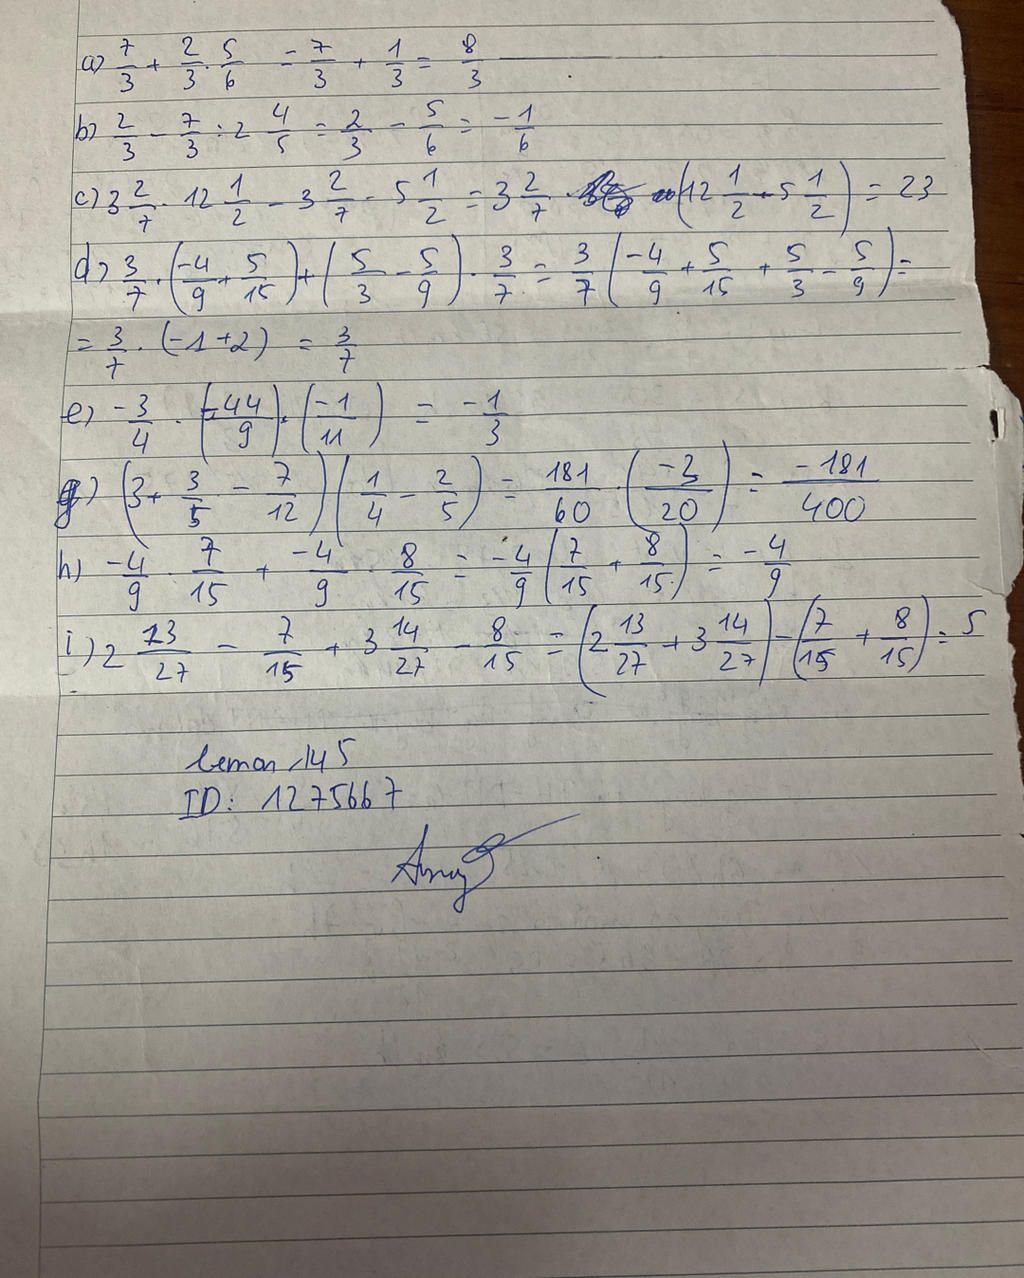 a) 7/3 + 2/3 . 5/6 = 7/3 + 1/3 = 8/3
b) 2/3 - 7/3 : 2 4/5 = 2/3 - 5/6 = -1/6
c) 3 2/7 . 12 1/2 - 3 2/7 . 5 1/2 = 3 2/7 (12 1/2 - 5 1/2) = 23
d) 3/7 . (-4/9 + 5/15) + (5/3 - 5/9) . 3/7 = 3/7 (-4/9 + 5/15 + 5/3 - 5/9) =
= 3/7 . (-1 + 2) = 3/7
e) -3/4 . (-44/9) . (-1/11) = -1/3
g) (3 + 3/5 - 7/12) (1/4 - 2/5) = 181/60 . (-3/20) = -181/400
h) -4/9 . 7/15 + -4/9 . 8/15 = -4/9 (7/15 + 8/15) = -4/9
i) 2 13/27 - 7/15 + 3 14/27 - 8/15 = (2 13/27 + 3 14/27) - (7/15 + 8/15) = 5
lemon145
ID: 1275667